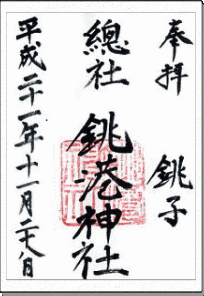 奉拝 銚子
總社 銚港神社
平成二十一年十一月二十八日